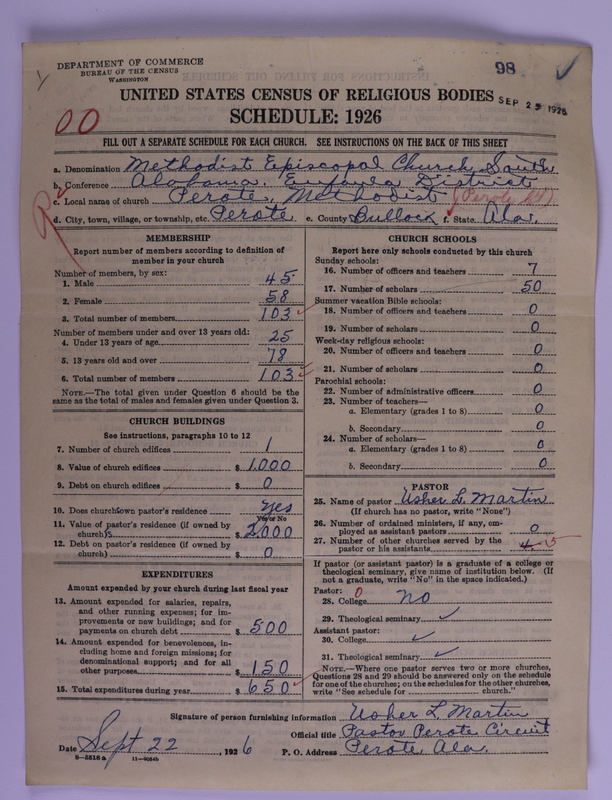 DEPARTMENT OF COMMERCE
BUREAU OF THE CENSUS
WASHINGTON
98
UNITED STATES CENSUS OF RELIGIOUS BODIES
SEP 25 1926
SCHEDULE: 1926
00
FILL OUT A SEPARATE SCHEDULE FOR EACH CHURCH. SEE INSTRUCTIONS ON THE BACK OF THIS SHEET
a. Denomination Methodist Episcopal Church, South
b. Conference Alabama. Eufaula District
c. Local name of church Perote, Methodist
d. City, town, village, or township, etc. Perote e. County Bullock f. State. Ala.
R
MEMBERSHIP
Report number of members according to definition of
member in your church
Number of members, by sex:
1. Male 45
2. Female 58
3. Total number of members 103
Number of members under and over 13 years old:
4. Under 13 years of age 25
5. 13 years old and over 78
6. Total number of members 103
NOTE.—The total given under Question 6 should be the
same as the total of males and females given under Question 3.
CHURCH BUILDINGS
See instructions, paragraphs 10 to 12
7. Number of church edifices 1
8. Value of church edifices $ 1,000
9. Debt on church edifices $ 0
10. Does church own pastor's residence? yes
Yes or No
11. Value of pastor's residence (if owned by
church) $ 2000
12. Debt on pastor's residence (if owned by
church) $ 0
EXPENDITURES
Amount expended by your church during last fiscal year
13. Amount expended for salaries, repairs,
and other running expenses; for im-
provements or new buildings; and for
payments on church debt $ 500
14. Amount expended for benevolences, in-
cluding home and foreign missions; for
denominational support; and for all
other purposes $ 150
15. Total expenditures during year $ 650
CHURCH SCHOOLS
Report here only schools conducted by this church
Sunday schools:
16. Number of officers and teachers 7
17. Number of scholars 50
Summer vacation Bible schools:
18. Number of officers and teachers 0
19. Number of scholars 0
Week-day religious schools:
20. Number of officers and teachers 0
21. Number of scholars 0
Parochial schools:
22. Number of administrative officers 0
23. Number of teachers—
a. Elementary (grades 1 to 8) 0
b. Secondary 0
24. Number of scholars—
a. Elementary (grades 1 to 8) 0
b. Secondary 0
PASTOR
25. Name of pastor Usher L. Martin
(If church has no pastor, write "None")
26. Number of ordained ministers, if any, em-
ployed as assistant pastors 0
27. Number of other churches served by the
pastor or his assistants 4 5
If pastor (or assistant pastor) is a graduate of a college or
theological seminary, give name of institution below. (If
not a graduate, write "No" in the space indicated.)
Pastor: 0
28. College no
29. Theological seminary
Assistant pastor:
30. College
31. Theological seminary
NOTE.—Where one pastor serves two or more churches,
Questions 28 and 29 should be answered only on the schedule
for one of the churches; on the schedules for the other churches,
write "See schedule for church."
Signature of person furnishing information Usher L. Martin
Official title Pastor Perote Circuit
Date Sept 22, 1926 P. O. Address Perote, Ala.
8—5518a 11—9064b